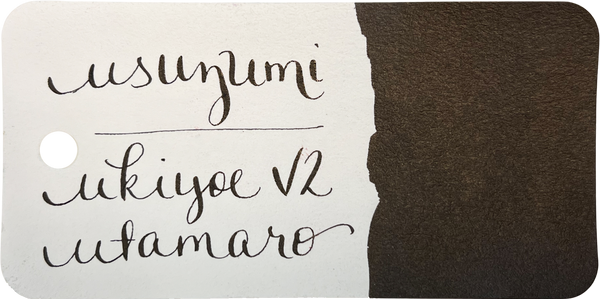 usuzumi
ukiyoe V2
utamaro